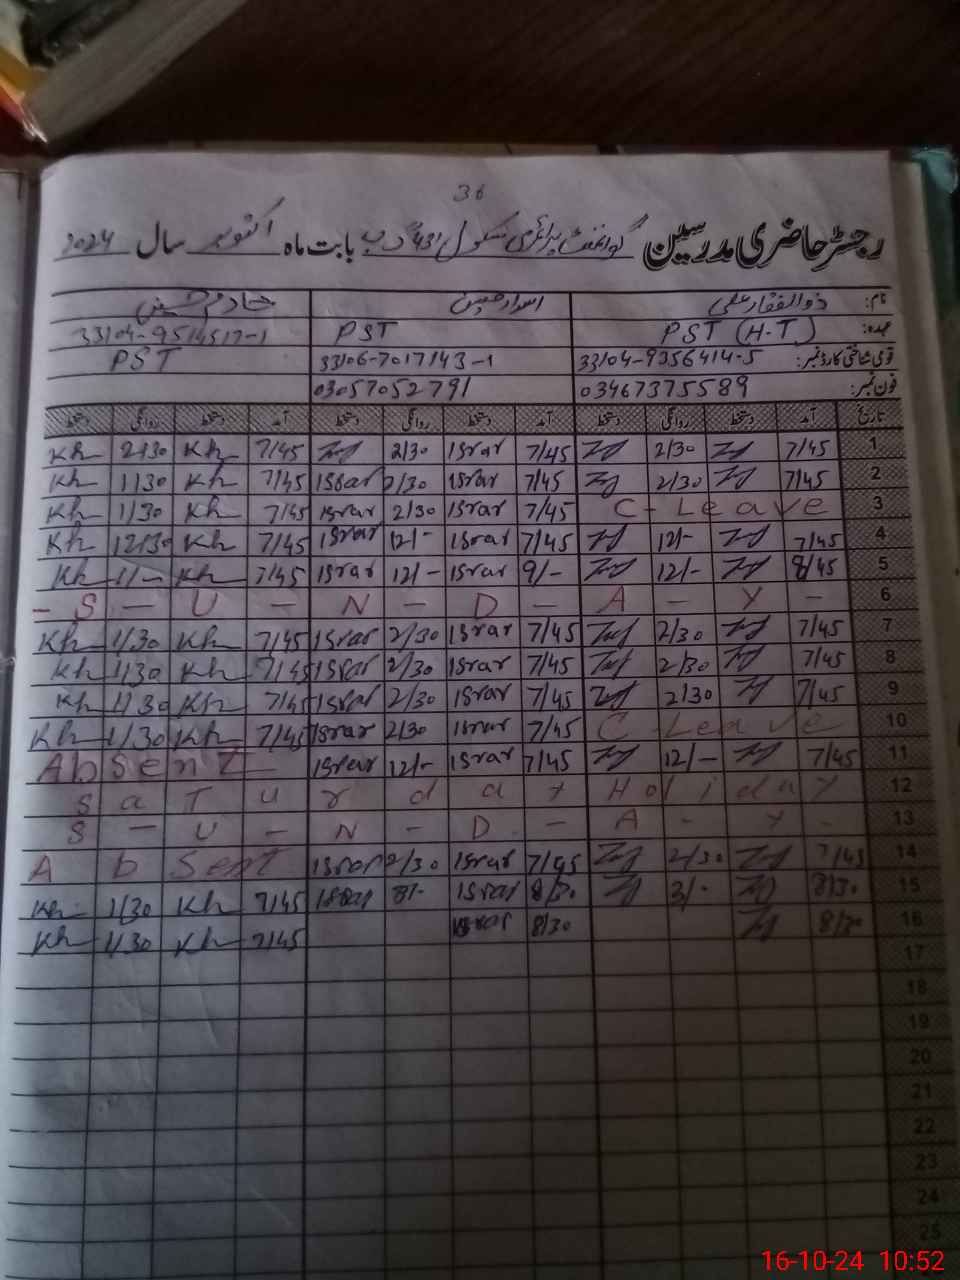 36
رجسٹر حاضری مدرسین گورنمنٹ پرائمری سکول 431 گ ب بابت ماہ اکتوبر سال 2024
نام: ذوالفقار علی اسرار حسین خادم حسین
عہدہ: PST (H-T) PST 33104-9514517-1
قومی شناختی کارڈ نمبر: 33104-9356414-5 33106-7017143-1 PST
فون نمبر: 03467375589 03057052791
تاریخ آمد دستخط روانگی دستخط آمد دستخط روانگی دستخط آمد دستخط روانگی دستخط
1 7/45 2/30 7/45 Israr 2/30 7/45 Kh 2/30 Kh
2 7/45 2/30 7/45 Israr 2/30 Israr 7/45 Kh 1/30 Kh
3 C-Leave 7/45 Israr 2/30 Israr 7/45 Kh 1/30 Kh
4 7/45 12/- 7/45 Israr 12/- Israr 7/45 Kh 12/30 Kh
5 8/45 12/- 9/- Israr 12/- Israr 7/45 Kh 1/- Kh
6 - S - U - N - D - A - Y -
7 7/45 2/30 7/45 Israr 2/30 Israr 7/45 Kh 1/30 Kh
8 7/45 2/30 7/45 Israr 2/30 Israr 7/45 Kh 1/30 Kh
9 7/45 2/30 7/45 Israr 2/30 Israr 7/45 Kh 1/30 Kh
10 C Leave 7/45 Israr 2/30 Israr 7/45 Kh 1/30 Kh
11 7/45 12/- 7/45 Israr 12/- Israr Absent
12 Saturday Holiday
13 S - U - N - D - A - Y -
14 7/45 2/30 7/45 Israr 2/30 Israr Absent
15 8/30 3/- 8/30 Israr 3/- Israr 7/45 Kh 1/30 Kh
16 8/30 8/30 Israr 7/45 Kh 1/30 Kh
17
18
19
20
21
22
23
24
25
16-10-24 10:52